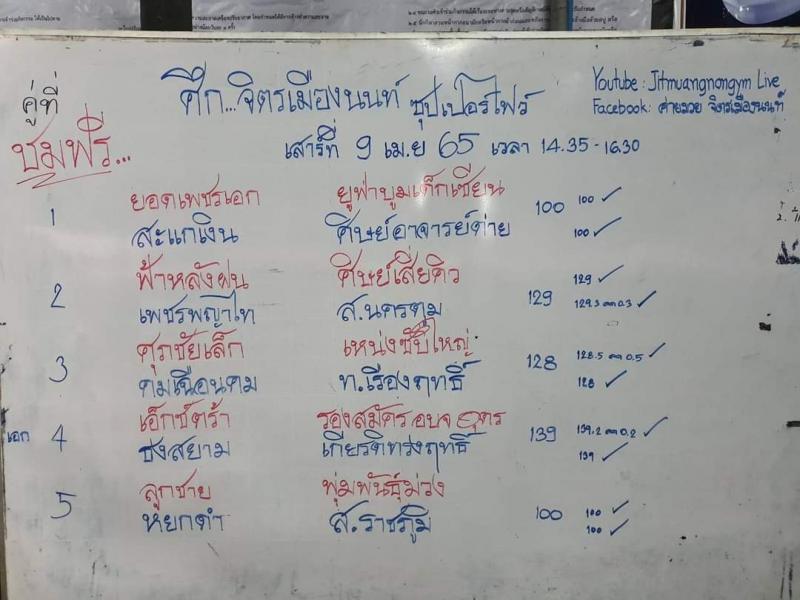 คู่ที่ ศึก...จิตรเมืองนนท์ ซุปเปอร์ไฟว์
Youtube : Jitmuangnongym Live
Facebook : ค่ายมวย จิตรเมืองนนท์
ชมฟรี...
เสาร์ที่ 9 เม.ย 65 เวลา 14.35 - 16.30
1 ยอดเพชรเอก ยูฟ่าบูมเด็กเซียน 100 100 ✓
สะแกเงิน ศิษย์อาจารย์ต่าย 100 ✓
2 ฟ้าหลังฝน ศิษย์เสี่ยคิว 129 129 ✓
เพชรพญาไท ส.นครตูม 129.3 ลด 0.3 ✓
3 ศุภชัยเล็ก เหน่งซับใหญ่ 128 128.5 ลด 0.5 ✓
คมเฉือนคม ท.เรืองฤทธิ์ 128 ✓
เอก 4 เอ็กซ์ตร้า รองสมัคร อบจ อุดร 139 139.2 ลด 0.2 ✓
ธงสยาม เกียรติทรงฤทธิ์ 139 ✓
5 ลูกชาย พุ่มพันธุ์ม่วง 100 100 ✓
หยกดำ ส.ราชภูมิ 100 ✓